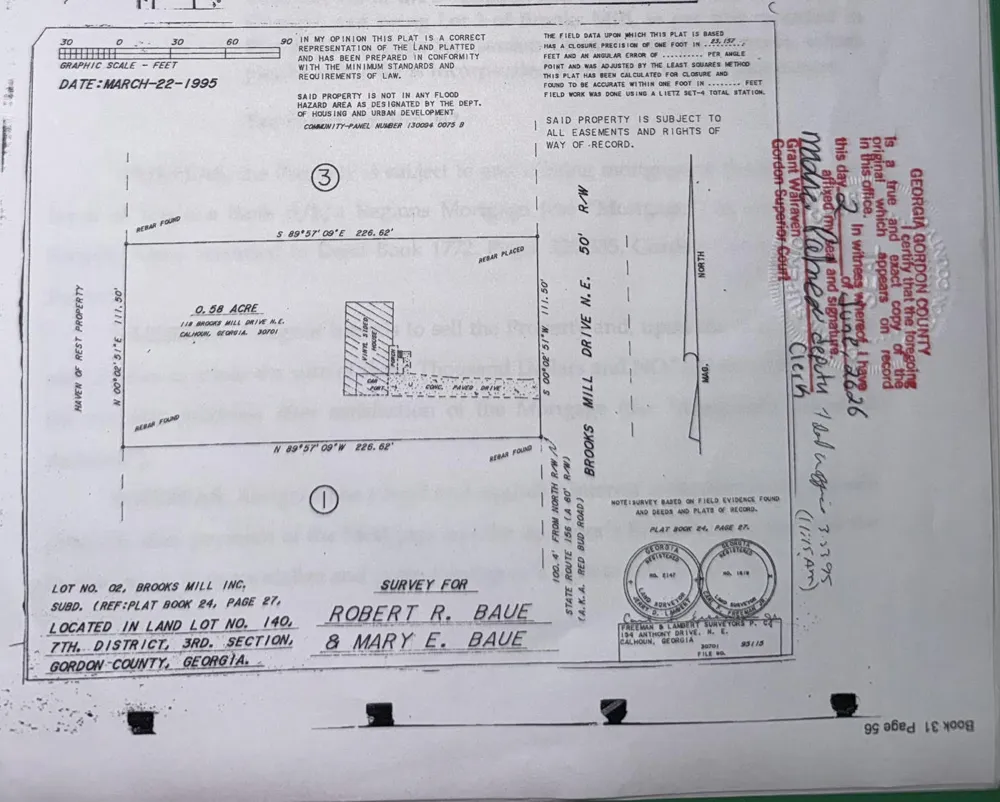 30 0 30 60 90
GRAPHIC SCALE - FEET
DATE: MARCH-22-1995
IN MY OPINION THIS PLAT IS A CORRECT
REPRESENTATION OF THE LAND PLATTED
AND HAS BEEN PREPARED IN CONFORMITY
WITH THE MINIMUM STANDARDS AND
REQUIREMENTS OF LAW.
SAID PROPERTY IS NOT IN ANY FLOOD
HAZARD AREA AS DESIGNATED BY THE DEPT.
OF HOUSING AND URBAN DEVELOPMENT
COMMUNITY-PANEL NUMBER 130094 0075 B
THE FIELD DATA UPON WHICH THIS PLAT IS BASED
HAS A CLOSURE PRECISION OF ONE FOOT IN 23,157
FEET AND AN ANGULAR ERROR OF .......... PER ANGLE
POINT AND WAS ADJUSTED BY THE LEAST SQUARES METHOD
THIS PLAT HAS BEEN CALCULATED FOR CLOSURE AND
FOUND TO BE ACCURATE WITHIN ONE FOOT IN ........ FEET
FIELD WORK WAS DONE USING A LIETZ SET-4 TOTAL STATION.
SAID PROPERTY IS SUBJECT TO
ALL EASEMENTS AND RIGHTS OF
WAY OF RECORD.
3
REBAR FOUND
S 89°57'09"E 226.62'
REBAR PLACED
HAVEN OF REST PROPERTY
N 00°02'51"E 111.50'
0.58 ACRE
118 BROOKS MILL DRIVE N.E.
CALHOUN, GEORGIA. 30701
HOUSE
CAR
PORT
CONC. PAVED DRIVE
S 00°02'51"W 111.50'
BROOKS MILL DRIVE N.E. 50' R/W
NORTH
MAG.
REBAR FOUND
N 89°57'09"W 226.62'
REBAR FOUND
1
100.4' FROM NORTH R/W
STATE ROUTE 156 (A 80' R/W)
(A.K.A. RED BUD ROAD)
NOTE: SURVEY BASED ON FIELD EVIDENCE FOUND
AND DEEDS AND PLATS OF RECORD.
PLAT BOOK 24, PAGE 27.
GEORGIA
REGISTERED
LAND SURVEYOR
JERRY D. LAMBERT
GEORGIA
REGISTERED
LAND SURVEYOR
FREEMAN & LAMBERT SURVEYORS P. C.
194 ANTHONY DRIVE, N. E.
CALHOUN, GEORGIA
30701 95115
FILE NO.
LOT NO. 02, BROOKS MILL INC,
SUBD. (REF:PLAT BOOK 24, PAGE 27,
LOCATED IN LAND LOT NO. 140,
7TH. DISTRICT, 3RD. SECTION,
GORDON COUNTY, GEORGIA.
SURVEY FOR
ROBERT R. BAUE
& MARY E. BAUE
GEORGIA GORDON COUNTY
I certify that the foregoing
is a true and exact copy of the
original which appears on record
in this office. In witness whereof, I have
affixed my seal and signature
this day 2 of June 2026
deputy Clerk
Grant Walraven
Gordon Superior Court
3-23-95
(11:15 AM)
Book 31 Page 56